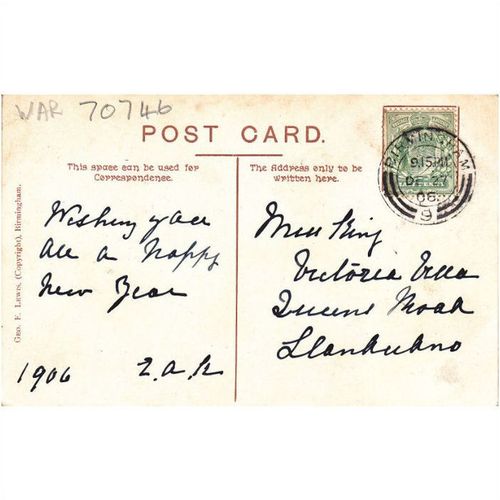 WAR 70746
POST CARD.
This space can be used for
Correspondence.
The Address only to be
written here.
BIRMINGHAM
9.15 PM
DE 27
06
9
Wishing you all
a Happy
New Year
1906
Miss King
Victoria Villa
Queens Road
Llandudno
Geo. F. Lewis, (Copyright), Birmingham.